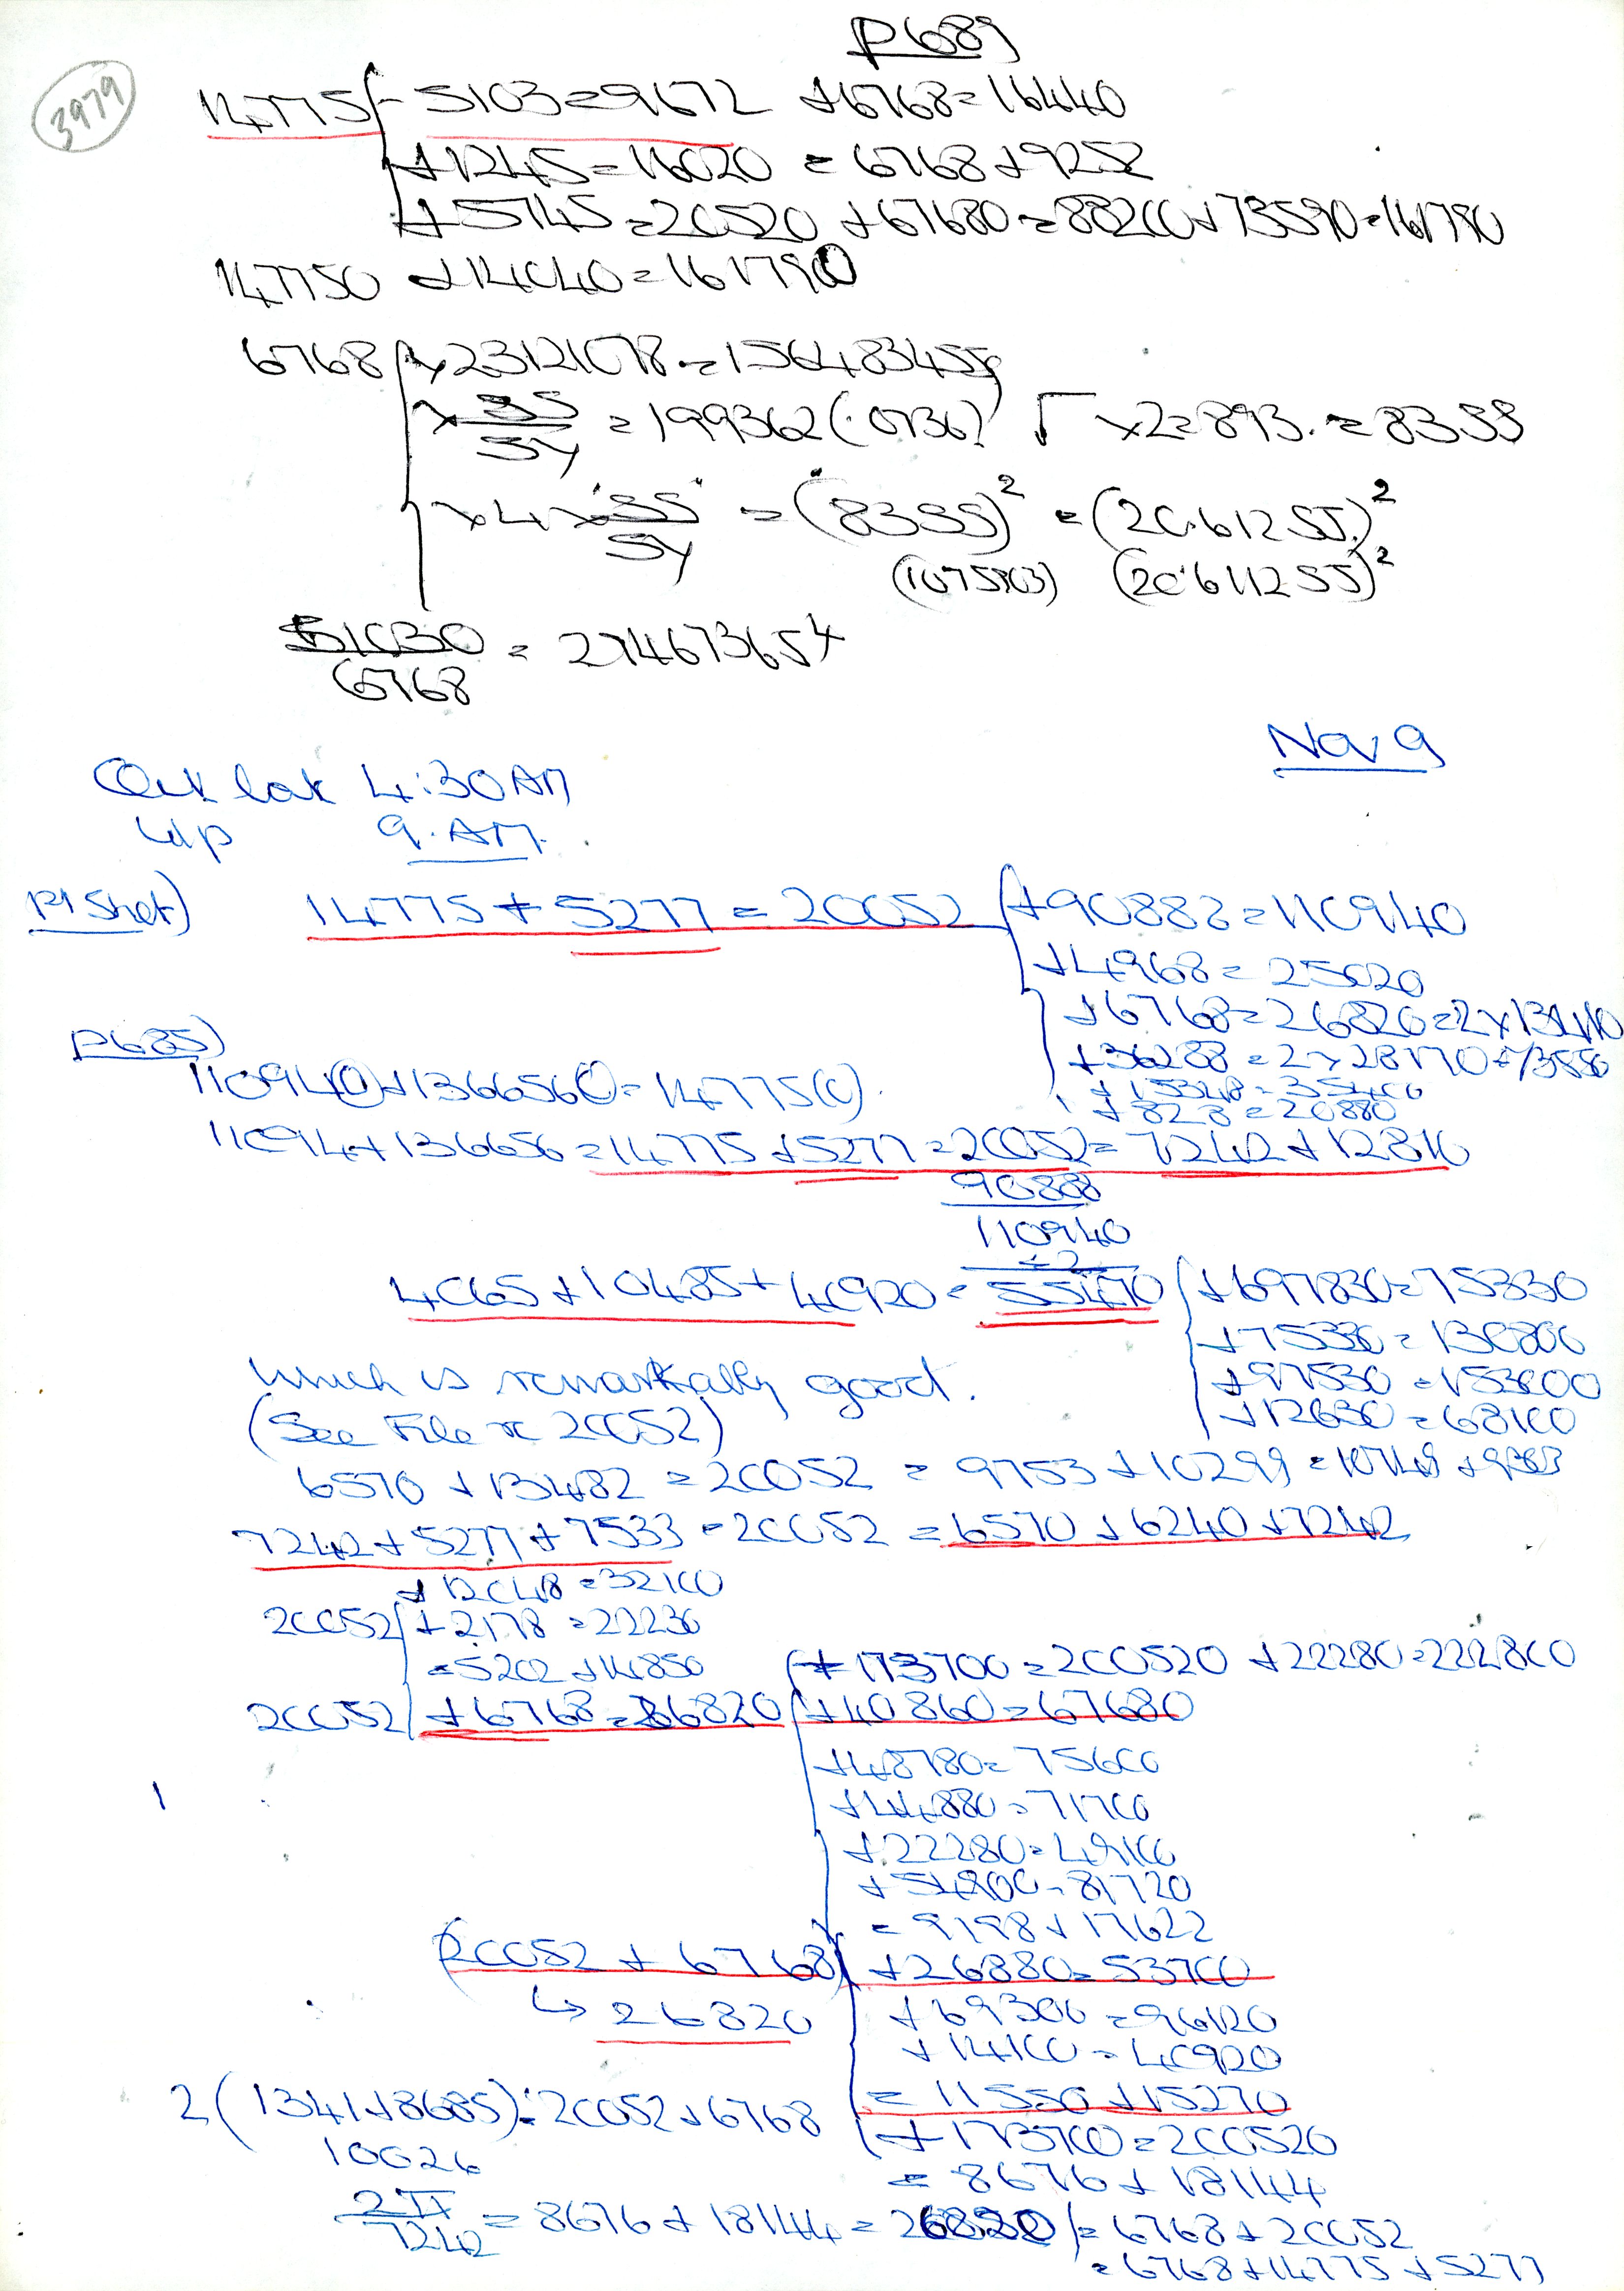 P689
3979
14775 - 5103 = 9672 + 6768 = 16440
+ 1245 = 16020 = 6768 + 9252
+ 5745 = 20520 + 67680 = 88200 + 73590 = 161790
147750 + 14040 = 161790
6768 × 23121078 = 156483455
× SS/SY = 199362 (.0736) √ × 2 = 893. = 83SS
× 4 × "SS"/SY = (83SS)² = (20.612SS.)²
(1075803) (20.6112SS)²
51030/6768 = 274673654
Nov 9
Out lat 4:30 AM
Up 9. AM.
P1 Shet) 14775 + 5277 = 20052 + 90888 = 110940
+ 4968 = 25020
+ 6768 = 26820 = 2 × 13410
+ 36288 = 2 × 28170
+ 15348 = 35400
+ 828 = 20880
P685)
110940 + 1366560 = 14775(0).
11094 + 136656 = 14775 + 5277 = 20052 = 7242 + 12810
90888
110940
÷ 2
4065 + 10485 + 40920 = 55470 + 697830 = 75330
+ 75330 = 130800
+ 97530 = 153000
+ 12630 = 68100
Which is remarkally good.
(See File π 20052)
6570 + 13482 = 20052 = 9753 + 10299 = 10749 + 9303
7242 + 5277 + 7533 = 20052 = 6570 + 6240 + 7242
+ 12048 = 32100
20052 + 2178 = 22230
= 5202 + 14850 + 173700 = 200520 + 22280 = 222800
20052 + 6768 = 26820 + 40860 = 67680
+ 48780 = 75600
+ 44880 = 71700
+ 22280 = 49100
+ 54900 = 81720
= 9198 + 17622
(20052 + 6768) + 26880 = 53700
↳ 26820 + 69300 = 96120
+ 14100 = 40920
= 11550 + 15270
2 (1341 + 8685) : 20052 + 6768 + 173700 = 200520
10026 = 8676 + 18144
2π/7242 = 8676 + 18144 = 26820 = 6768 + 20052
= 6768 + 14775 + 5277